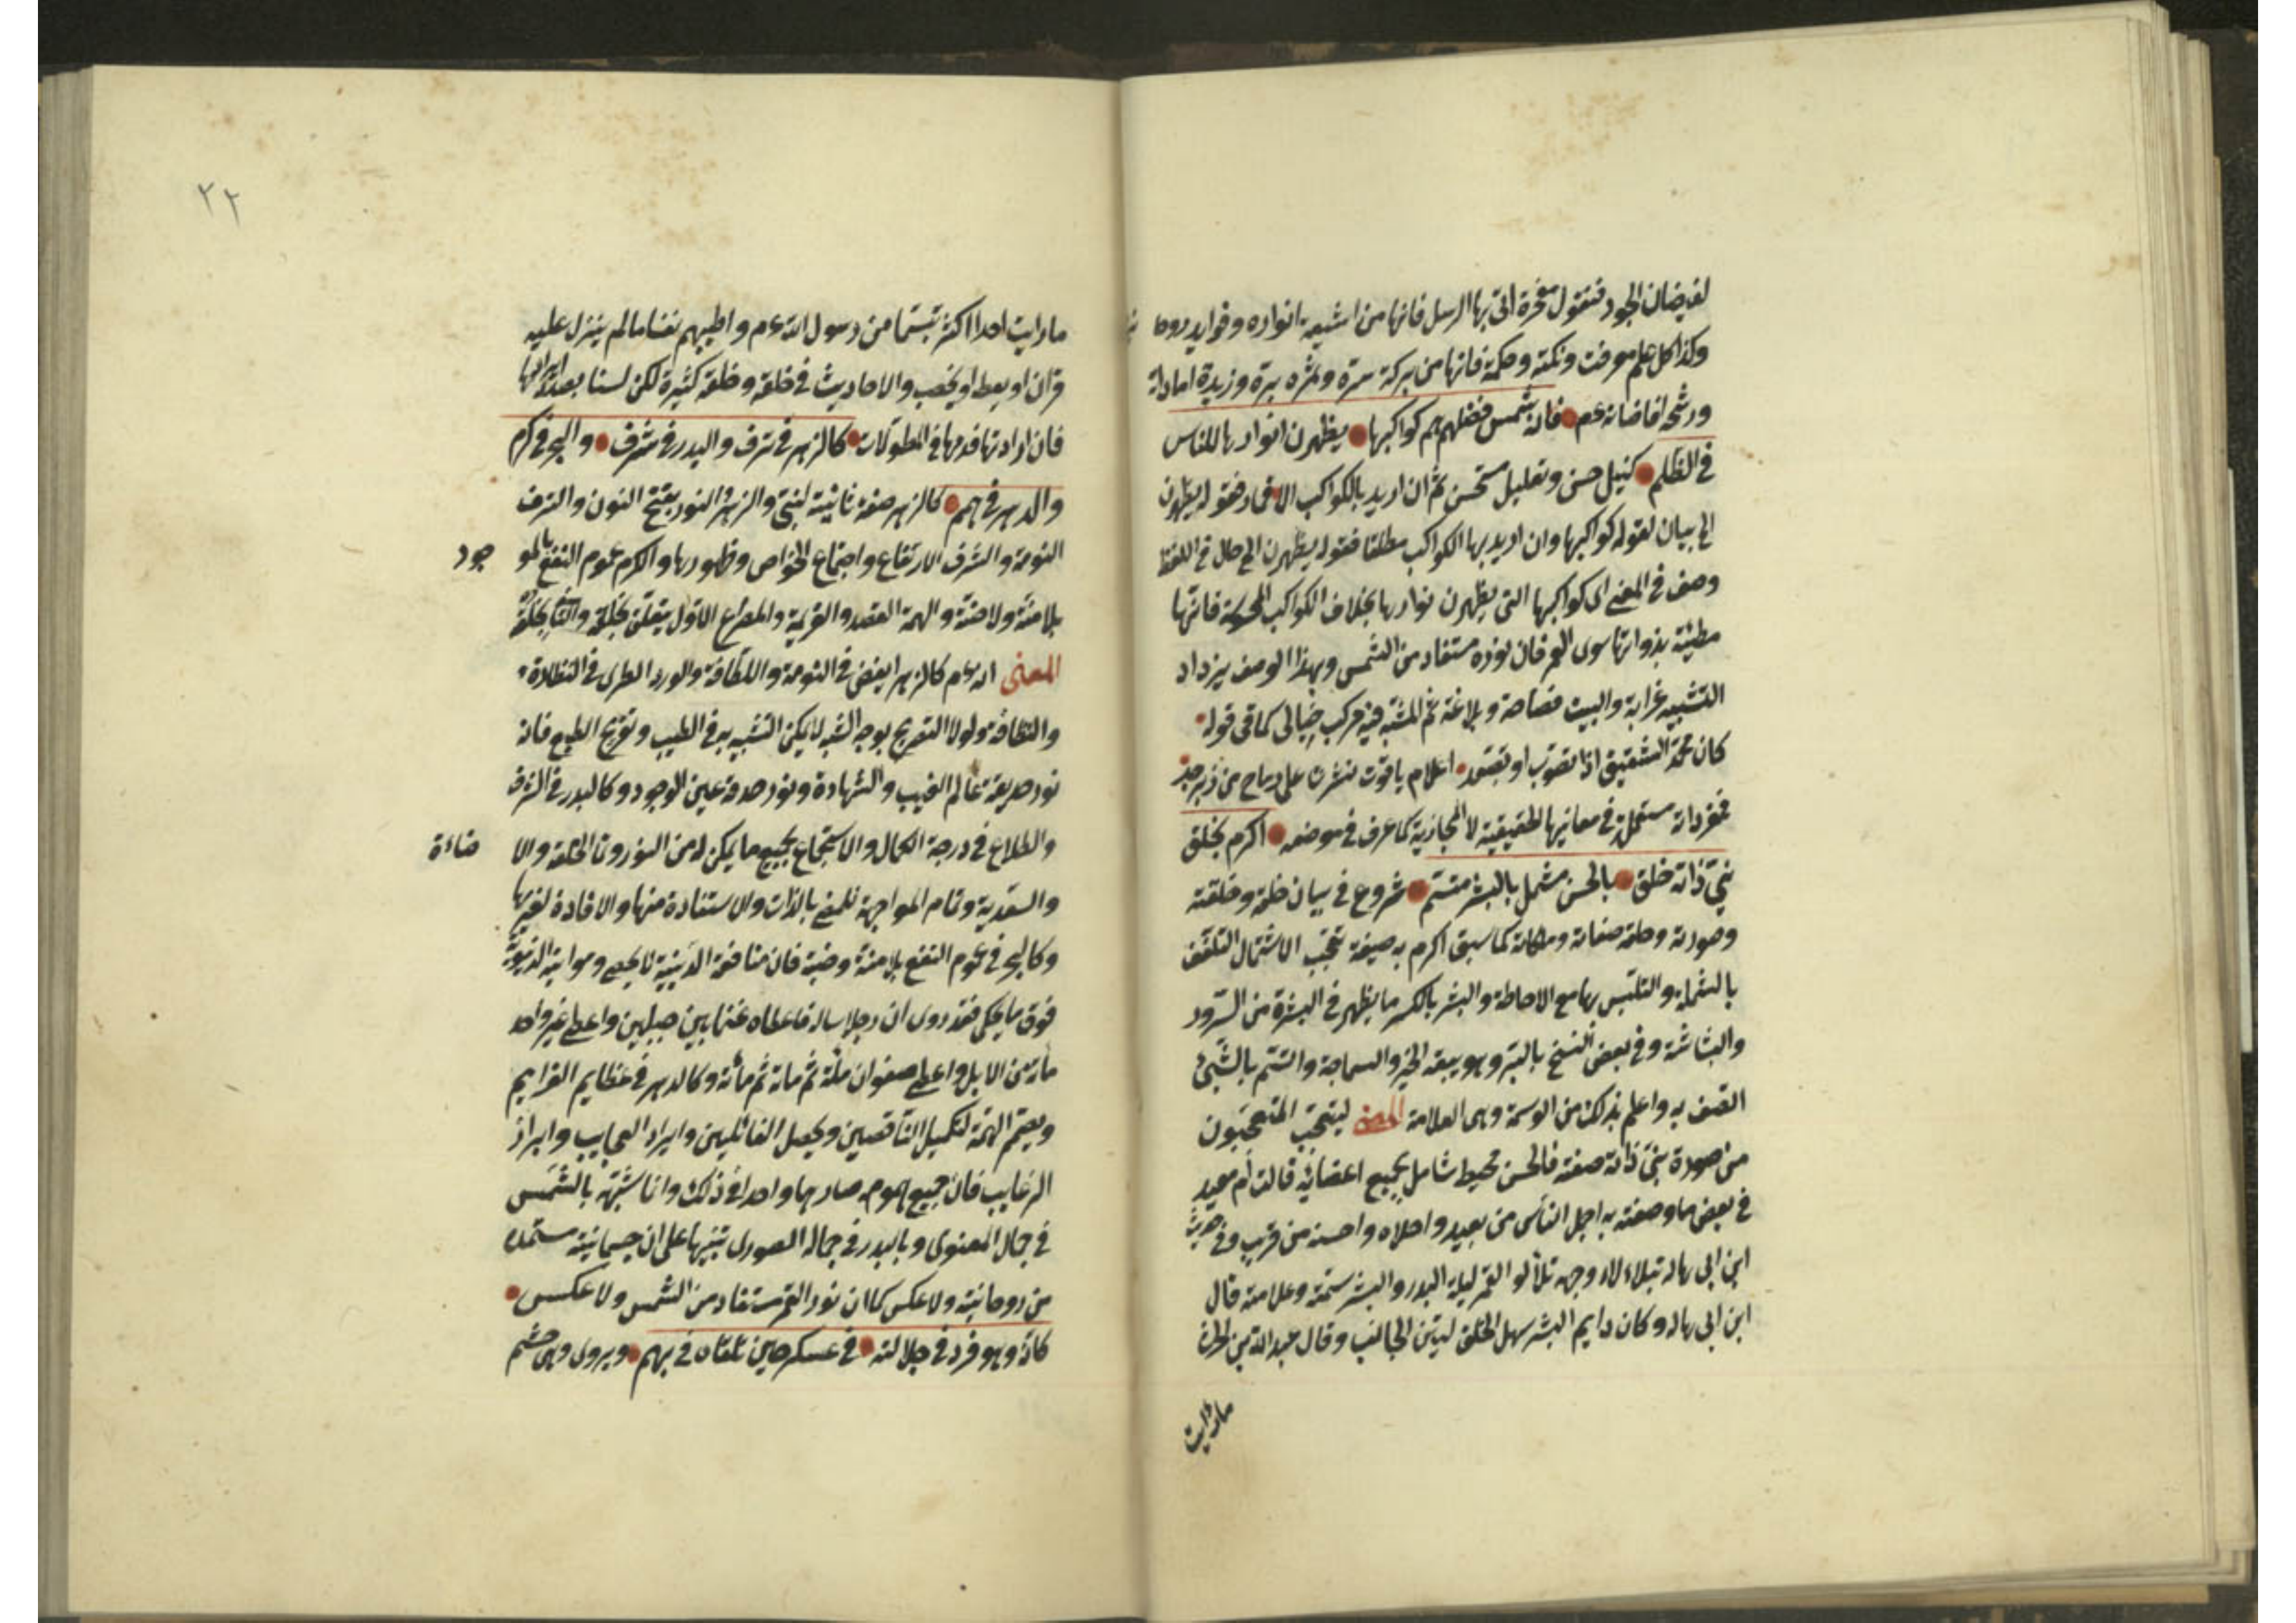 لفيضان الجود فنقول معجزة اتى بها الرسل فانها من اشعة انواره وفوايد روحا نية
وكذا كل علم ومعرفت ونكتة وحكمة فانها من بركة سره وثمره بره وزبدة امداداته
ورشحة افاضاته عم فانه شمس فضلهم هم كواكبها يظهرن انوارها للناس
في الظلم تخييل حسن وتعليل مستحسن ثم ان اريد بالكواكب الاقمار فقوله يظهرن
الخ بيان لقوله كواكبها وان اريد بها الكواكب مطلقا فقوله يظهرن الخ حال في اللفظ
وصف في المعنى اى كواكبها التى يظهرن انوارها بخلاف الكواكب فانها
مضيئة بذواتها سوى القمر فان نوره مستفاد من الشمس وبهذا الوصف يزداد
التشبيه غرابة والبيت فصاحة وبلاغة ثم المشبه فيه مركب خيالى كما فى قوله
كان محمر الشقيق اذا تصوب او تصعد اعلام ياقوت نشرن على رماح من زبرجد
فمفرداته مستعملة في معانيها الحقيقية لا المجازية كما عرف في موضعه اكرم بخلق
نبي زانه خلق بالحسن مشتمل بالبشر متسم شروع في بيان خلقه وخلقته
وصورته وحليه صفاته كما سبق اكرم به صيغة تعجب الاشتمال التلفف
بالشملة والتلبس بها مع الاحاطة والبشر بالكسر ما يظهر في البشرة من السرور
والبشاشة وفي بعض النسخ بالبر وهو سعة الخير والسماحة واتسم بالشئ
اتصف به واعلم بذلك من الوسمة وهى العلامة المعنى ليتعجب المتعجبون
من صورة نبي زانه صفته فالحسن محيط شامل بجميع اعضائه قالت ام معبد
في بعض ما وصفته به اجمل الناس من بعيد واحلاه واحسنه من قريب وفي حديث
ابن ابى هاله يتلالاء وجهه تلألو القمر ليلة البدر والبشر سمته وعلامته قال
ابن ابى هاله وكان دايم البشر سهل الخلق لين الجانب وقال عبد الله بن الحرث
ما رأيت
٢٢
ما رايت احدا اكثر تبسما من رسول الله عم واطيبهم نفسا مالم ينزل عليه
قران او يعظ او يخطب والاحاديث في خلقه وخلقته كثيرة لكن لسنا بصدد ايرادها
فان اراد تها فعد مها في المطولات كالزهر في ترف والبدر في شرف والبحر في كرم
والدهر في همم كالزهر صفة ثانية لنبي والزهر النور بفتح النون والترف
النومة والشرف الارتفاع واجتماع الخواص وظهورها والكرم عموم النفع بالمو جود
بلا منة ولا ضنة والهمة القصد والعزيمة والمصراع الاول يتعلق بخلقه والثانى بخلقه
المعنى انه عم كالزهر ابيض في النعومة واللطافة والورد الطرى في النضارة
والنظافة ولولا التصريح بوجه الشبه لا يمكن التشبيه به في الطيب وتفريح الطبع فانه
نور حديقة عالم الغيب والشهادة ونور حدقة عين الوجود وكالبدر في الشرف
والطلاع في درجة الكمال والاستجماع بجميع ما يمكن له من النور وتا الخلقة والا ضاءة
والتعدية وتمام المواجهة للمعنى بالذات والاستفادة منها والافادة لغيرها
وكالبحر في عموم النفع بلا منة وضنة فان منافعه الدينية لا تحصى ومواهبه الدنيوية
فوق ما يحكى فقد روى ان رجلا ساله فاعطاه غنما بين جبلين واعطى غير واحد
مأة من الابل واعطى صفوان مأة ثم مأة ثم مأة وكالدهر في عظايم العزايم
وبعتم الهمة لتكميل الناقصين وتحصيل الفاضلين وايراد العجايب وابراز
الرغايب فان جميع همومه صار هما واحدا في ذلك وانما شبهه بالشمس
في جمال المعنوى وبالبدر في جماله الصورى تنبيها على ان جسمانيته مستمدة
من روحانيته ولا عكس كما ان نور القمر مستفاد من الشمس ولا عكس
كانه وهو فرد في جلالته في عسكر حين تلقاه في بهم ويروى وفى حشم